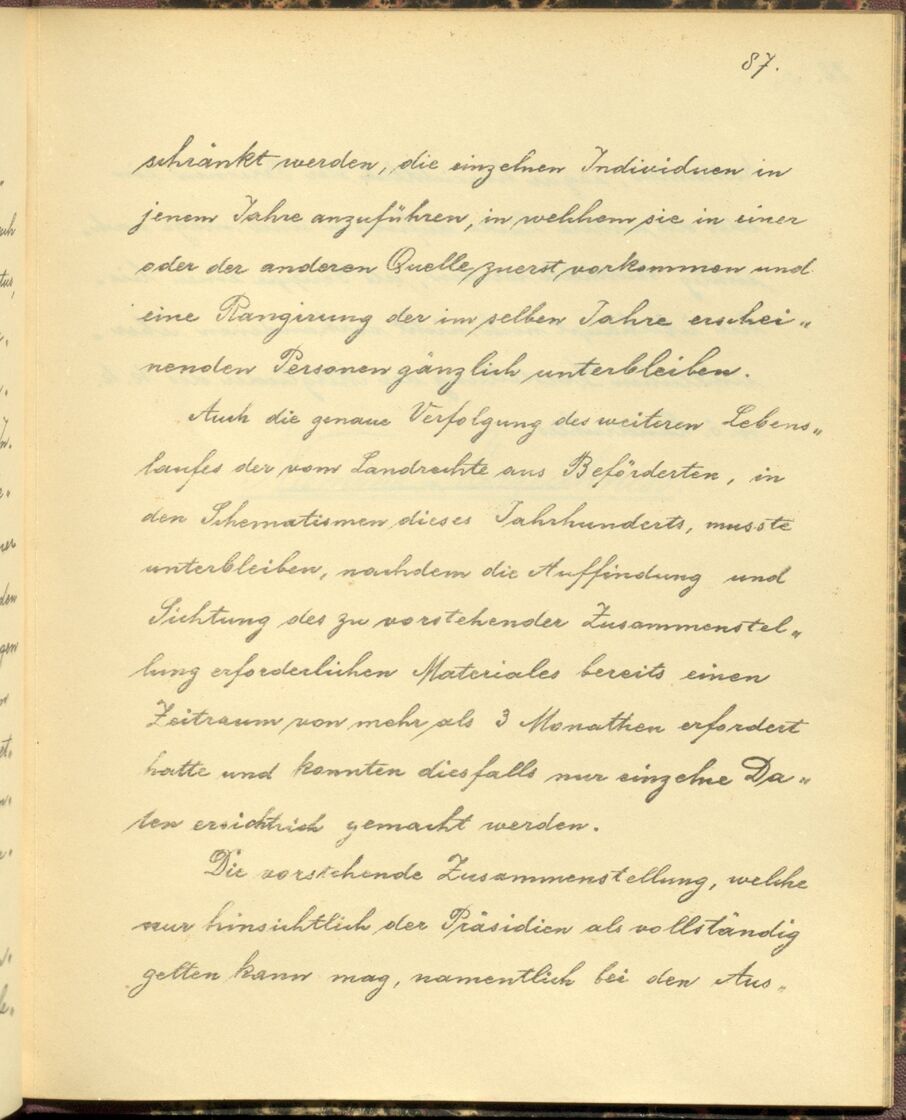 87.
schränkt werden, die einzelnen Individuen in
jenem Jahre anzuführen, in welchem sie in einer
oder der anderen Quelle zuerst vorkommen und
eine Rangirung der im selben Jahre erschei„
nenden Personen gänzlich unterbleiben.
Auch die genaue Verfolgung des weiteren Lebens„
laufes der vom Landrechte aus Beförderten, in
den Schematismen dieses Jahrhunderts, musste
unterbleiben, nachdem die Auffindung und
Sichtung des zu vorstehender Zusammenstel„
lung erforderlichen Materiales bereits einen
Zeitraum von mehr als 3 Monathen erfordert
hatte und konnten diesfalls nur einzelne Da„
ten ersichtlich gemacht werden.
Die vorstehende Zusammenstellung, welche
nur hinsichtlich der Präsidien als vollständig
gelten kann mag, namentlich bei den Aus„